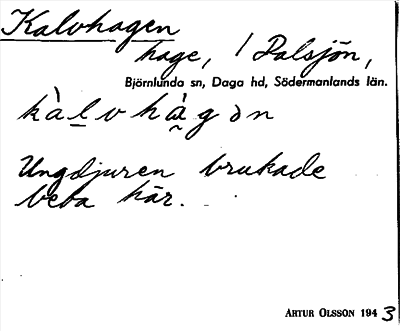 Kalvhagen
hage, / Dalsjön,
Björnlunda sn, Daga hd, Södermanlands län.
kàlvhàgən
Ungdjuren brukade
beta här.
ARTUR OLSSON 1943